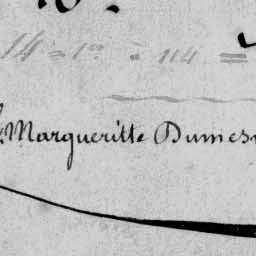 14 = 1° = 114 =
Margueritte Dumesn